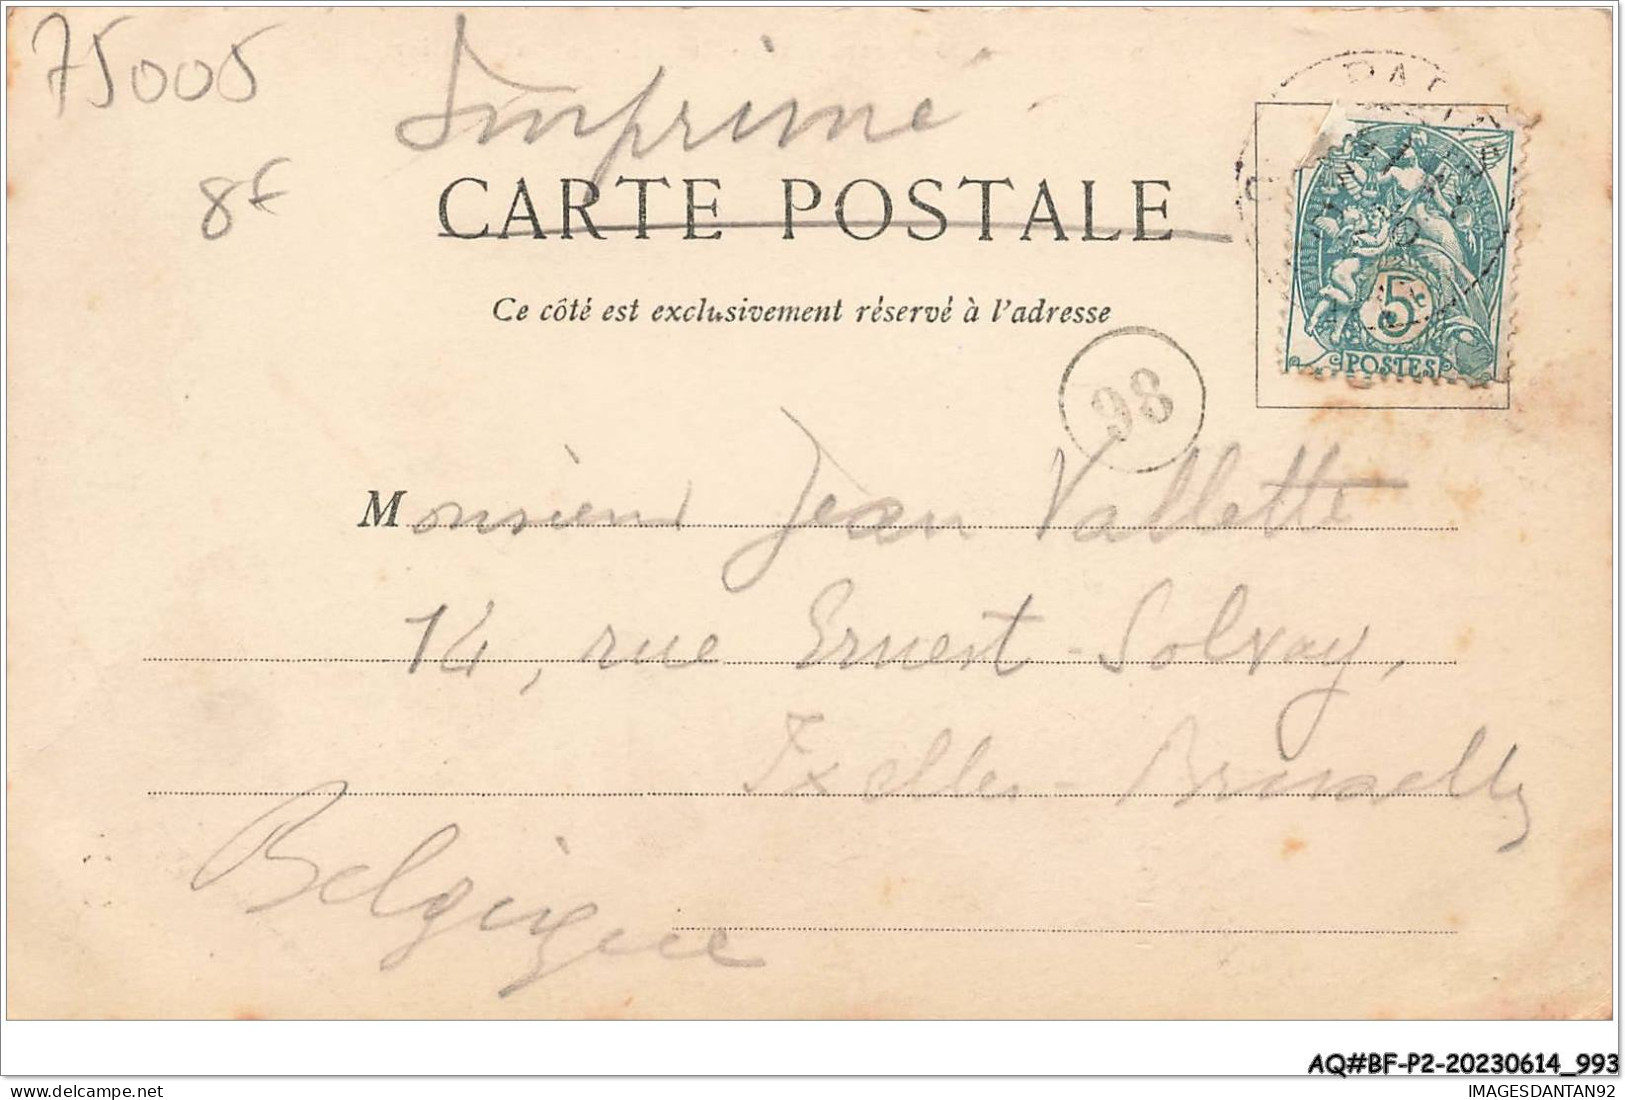 75005
Imprimé
8f
CARTE POSTALE
Ce côté est exclusivement réservé à l'adresse
5c
POSTES
98
Monsieur Jean Vallette
14, rue Ernest-Solvay,
Ixelles-Bruxelles
Belgique
AQ#BF-P2-20230614_993
delcampe.net
IMAGESDANTAN92